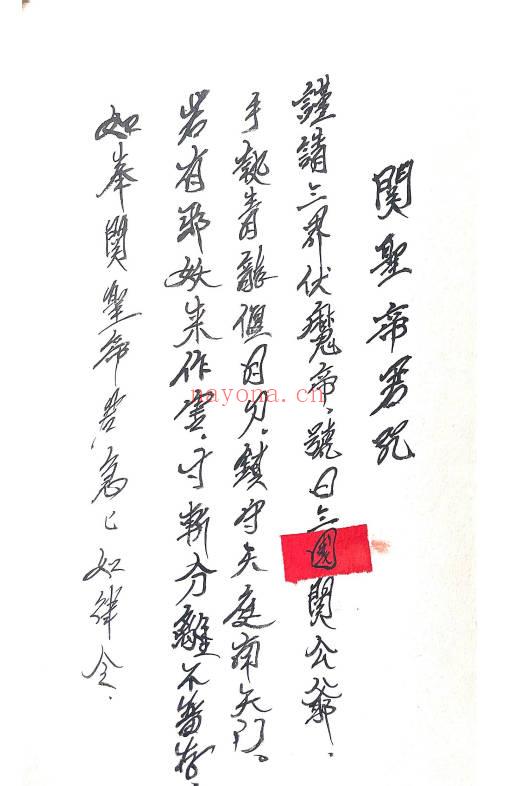 関聖帝君咒
謹請三界伏魔帝、號曰三國関公爺、
手執青龍偃月刀、鎮守天庭南天门。
若有邪妖来作怪、寸斬分離不留存、
如奉関聖帝君急乚如律令、
nayona.cn